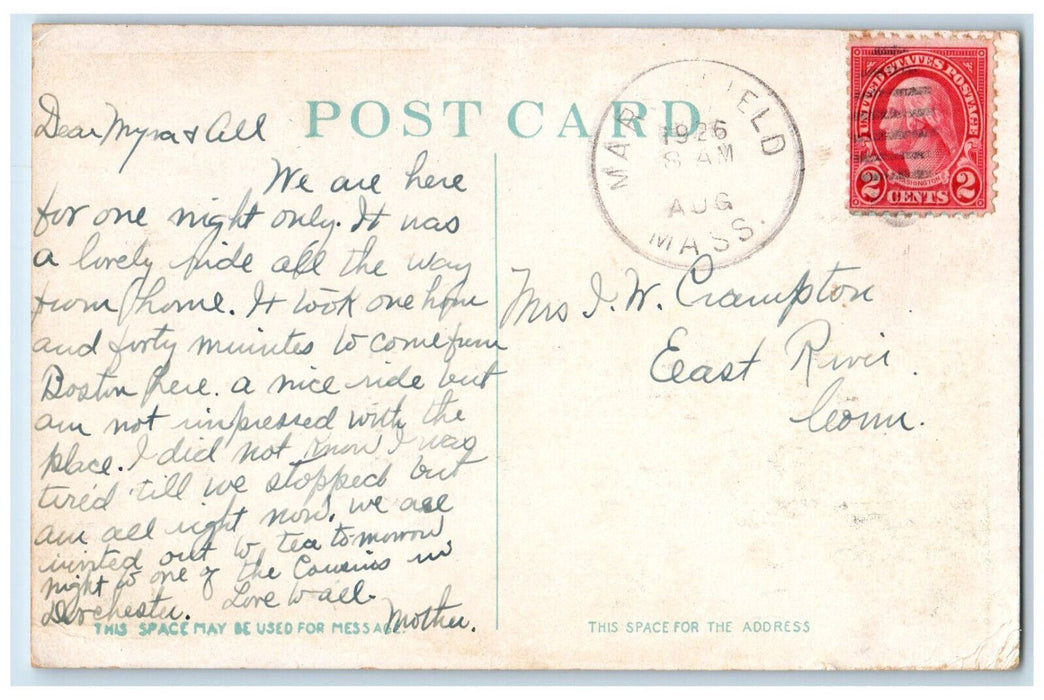 POST CARD
MARSHFIELD
1926
8 AM
AUG
MASS.
UNITED STATES POSTAGE
WASHINGTON
2 CENTS 2
Dear Myra & All
We are here
for one night only. It was
a lovely ride all the way
from home. It took one hour
and forty minutes to come from
Boston here. a nice ride but
am not impressed with the
place. I did not know I was
tired till we stopped but
am all right now. we are
invited out to tea tomorrow
night to one of the Cousins in
Dorchester. Love to all.
Mother.
Mrs J. W. Crampton
East River.
Conn.
THIS SPACE MAY BE USED FOR MESSAGE.
THIS SPACE FOR THE ADDRESS